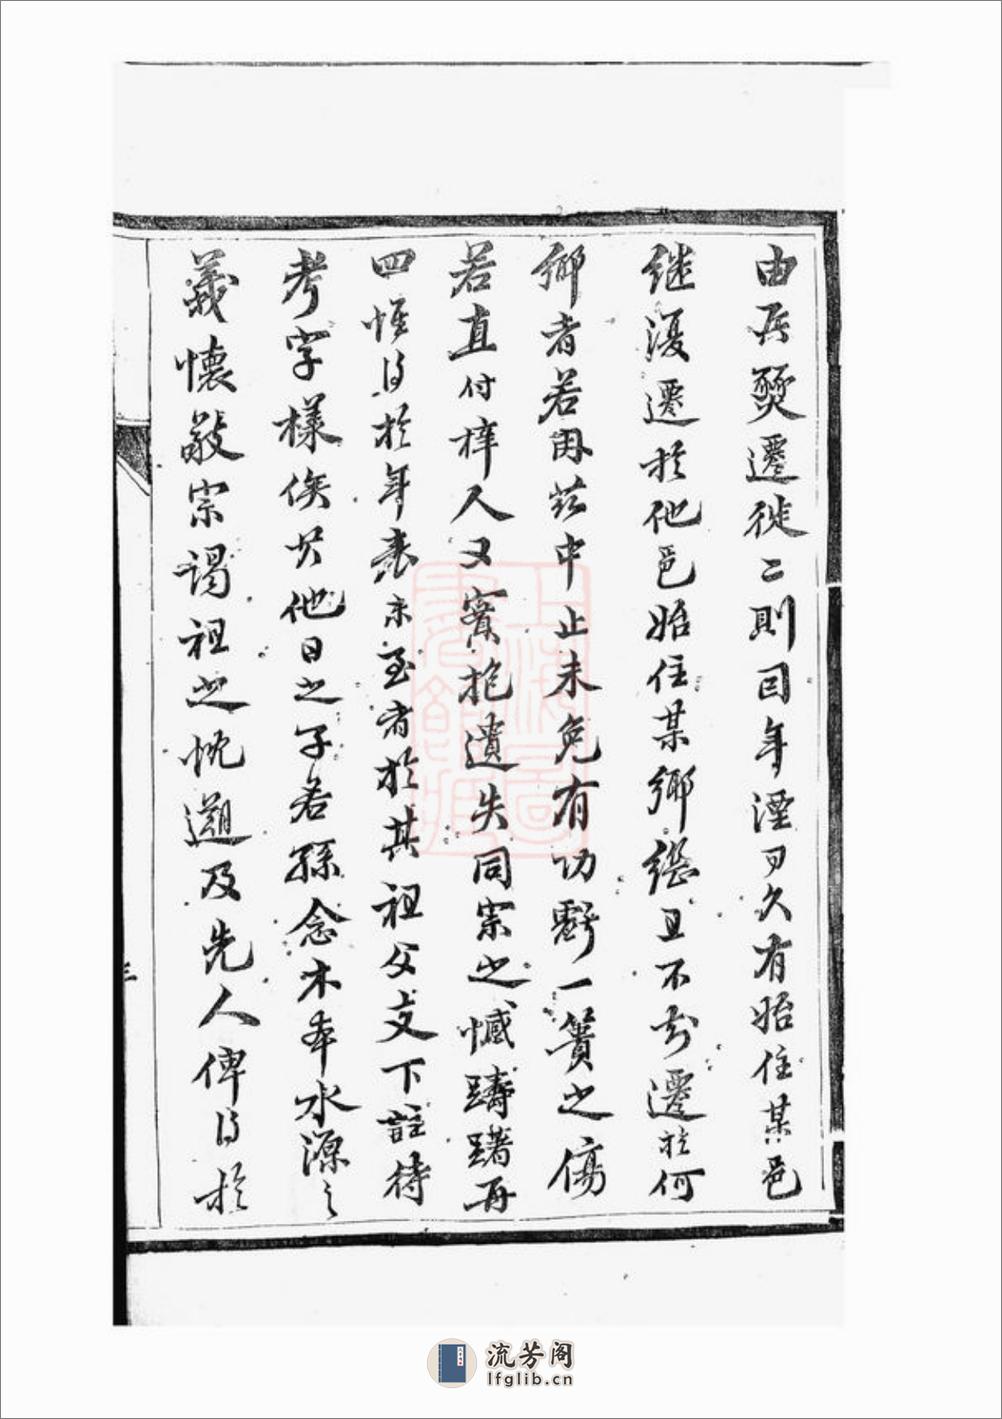 由兵燹遷徙二則因年湮日久有始住某邑
继復遷於他邑始住某鄉继且不知遷於何
鄉者若因茲中止未免有功虧一簣之傷
若直付梓人又實抱遺失同宗之憾躊躇再
四惟将於年表未至者於其祖父文下註待
考字樣俟其他日之子若孫念木本水源之
義懷敬宗謁祖之忱遡及先人俾得於
三
上海圖書館藏
流芳阁
lfglib.cn